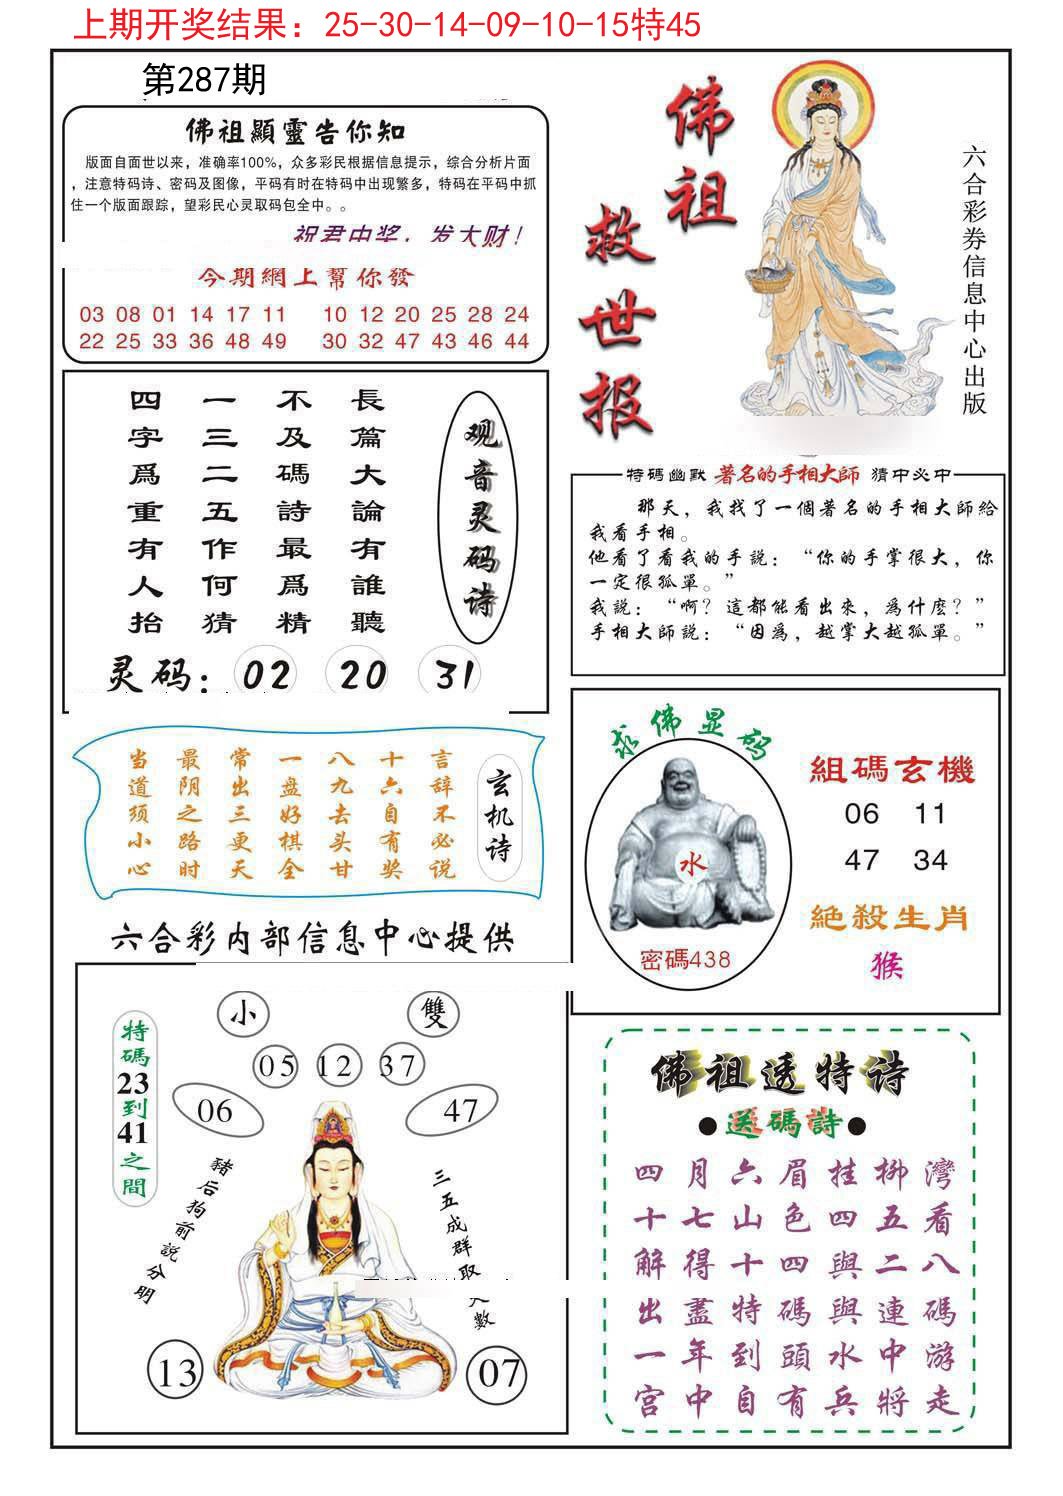 上期开奖结果：25-30-14-09-10-15特45
第287期
佛祖顯靈告你知
版面自面世以来，准确率100%，众多彩民根据信息提示，综合分析片面
，注意特码诗、密码及图像，平码有时在特码中出现繁多，特码在平码中抓
住一个版面跟踪，望彩民心灵取码包全中。。
祝君中奖，发大财！
今期網上幫你發
03 08 01 14 17 11 10 12 20 25 28 24
22 25 33 36 48 49 30 32 47 43 46 44
佛祖
救世报
六合彩券信息中心出版
观音灵码诗
長篇大論有誰聽
不及碼詩最爲精
一三二五作何猜
四字爲重有人抬
灵码：02 20 31
特碼幽默 著名的手相大師 猜中必中
那天，我找了一個著名的手相大師給
我看手相。
他看了看我的手説：“你的手掌很大，你
一定很孤單。”
我説：“啊？這都能看出來，爲什麼？”
手相大師説：“因爲，越掌大越孤單。”
玄机诗
言辞不必说
十六自有奖
八九去头甘
一盘好棋全
常出三更天
最阴之路时
当道须小心
求佛显码
水
密碼438
組碼玄機
06 11
47 34
絕殺生肖
猴
六合彩内部信息中心提供
小
雙
05 12 37
06
47
特碼23到41之間
豬后狗前説分明
三五成群取
數
13
07
佛祖透特诗
●送碼詩●
四月六眉挂柳灣
十七山色四五看
解得十四與二八
出盡特碼與連碼
一年到頭水中游
宫中自有兵將走